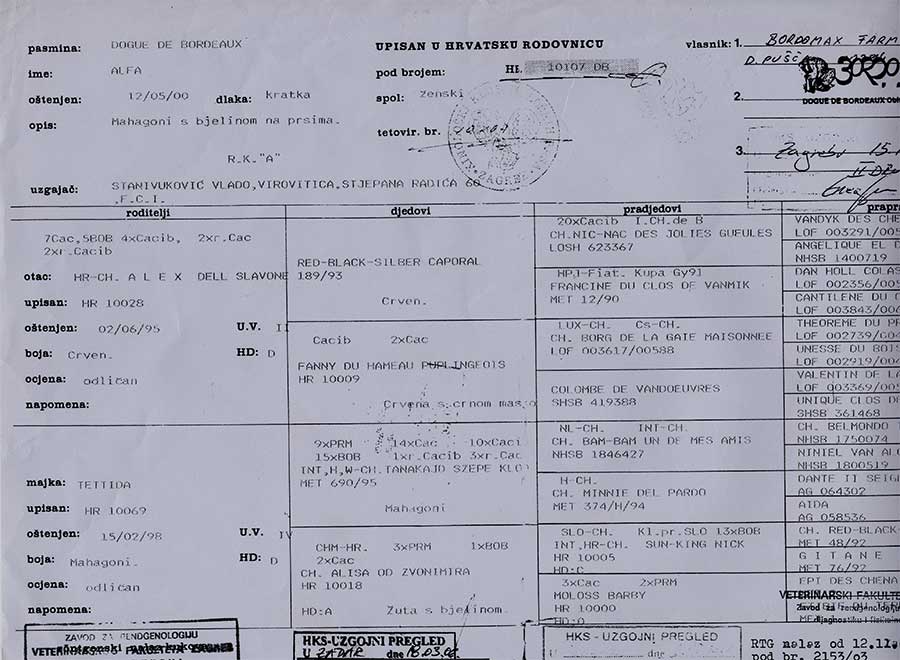 pasmina: DOGUE DE BORDEAUX
ime: ALFA
oštenjen: 12/05/00 dlaka: kratka
opis: Mahagoni s bjelinom na prsima.
R.K."A"
uzgajač: STANIVUKOVIĆ VLADO,VIROVITICA,STJEPANA RADIĆA 60
,F.C.I.
UPISAN U HRVATSKU RODOVNICU
pod brojem: HR 10107 DB
spol: ženski
tetovir. br.
ZAGREB
vlasnik: 1. BORDOMAX FARM
D. PUŠĆ
2.
DOGUE DE BORDEAUX
3. Zagreb 15
roditelji
7Cac,5BOB 4xCacib, 2xr.Cac
2xr.Cacib
otac: HR-CH. A L E X DELL SLAVONE
upisan: HR 10028
oštenjen: 02/06/95 U.V. II
boja: Crven. HD: D
ocjena: odličan
napomena:
majka: TETTIDA
upisan: HR 10069
oštenjen: 15/02/98 U.V. IV
boja: Mahagoni. HD: D
ocjena: odličan
napomena:
djedovi
RED-BLACK-SILBER CAPORAL
189/93
Crven.
Cacib 2xCac
FANNY DU HAMEAU PUPLINGEOIS
HR 10009
Crvena s crnom masko
9xPRM 14xCac 10xCaci
15xBOB 1xr.Cacib 3xr.Cac
INT,H,W-CH.TANAKAJD SZEPE KLO
MET 690/95
Mahagoni
CHM-HR. 3xPRM 1xBOB
2xCac
CH. ALISA OD ZVONIMIRA
HR 10018
HD:A Žuta s bjelinom.
pradjedovi
20xCacib I.CH.de B
CH.NIC-NAC DES JOLIES GUEULES
LOSH 623367
HPJ-Fiat. Kupa Gy91
FRANCINE DU CLOS DE VANMIK
MET 12/90
LUX-CH. Cs-CH.
CH. BORG DE LA GAIE MAISONNEE
LOF 003617/00588
COLOMBE DE VANDOEUVRES
SHSB 419388
NL-CH. INT-CH.
CH. BAM-BAM UN DE MES AMIS
NHSB 1846427
H-CH.
CH. MINNIE DEL PARDO
MET 374/H/94
SLO-CH. Kl.pr.SLO 13xBOB
INT,HR-CH. SUN-KING NICK
HR 10005
HD:C
3xCac 2xPRM
MOLOSS BARBY
HR 10000
HD:D
prapra
VANDYK DES CHE
LOF 003291/005
ANGELIQUE EL D
NHSB 1400719
DAN HOLL COLAS
LOF 002356/005
CANTILENE DU C
LOF 003843/006
THEOREME DU PR
LOF 002739/004
UNESSE DU BOIS
LOF 002919/004
VALENTIN DE LA
LOF 003369/005
UNIQUE CLOS DE
SHSB 361468
CH. BELMONDO
NHSB 1750074
NINIEL VAN AL
NHSB 1800519
DANTE II SEIG
AG 064302
AIDA
AG 058536
CH. RED-BLACK-
MET 48/92
G I T A N E
MET 76/92
EPI DES CHENA
VETERINARSKI FAKULTE
Zavod za rendgenologiju
dijagnostiku i fizikaln
ZAVOD ZA RENDGENOLOGIJU
VETERINARSKI FAKULTET ZAGREB
HKS-UZGOJNI PREGLED
U ZADAR dne 18.03.
HKS - UZGOJNI PREGLED
U dne
RTG nalaz od 12.11
pod br. 2153/03